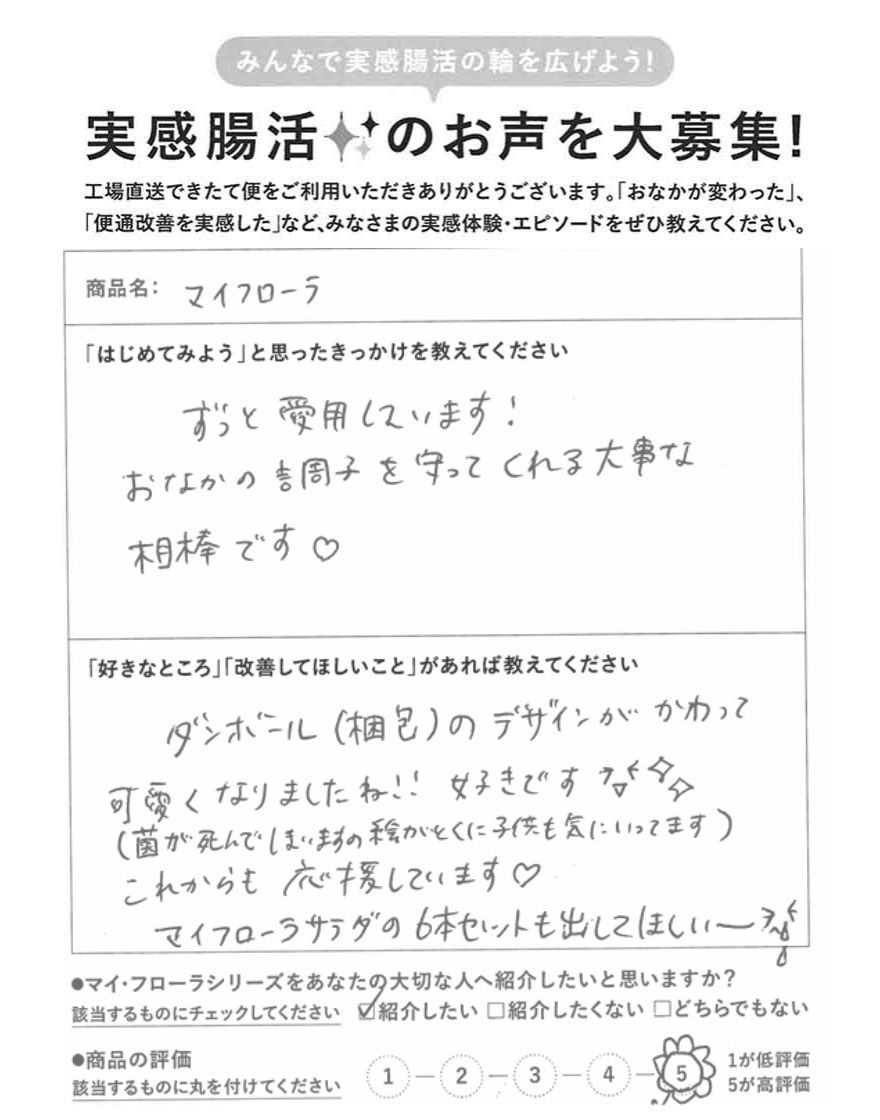 みんなで実感腸活の輪を広げよう!
実感腸活のお声を大募集!
工場直送できたて便をご利用いただきありがとうございます。「おなかが変わった」、
「便通改善を実感した」など、みなさまの実感体験・エピソードをぜひ教えてください。
商品名: マイフローラ
「はじめてみよう」と思ったきっかけを教えてください
ずっと愛用しています!
おなかの調子を守ってくれる大事な
相棒です♡
「好きなところ」「改善してほしいこと」があれば教えてください
ダンボール(梱包)のデザインがかわって
可愛くなりましたね!! 好きです
(菌が死んでしまいますの絵がとくに子供も気にいってます)
これからも応援しています♡
マイフローラサラダの6本セットも出してほしい〜
●マイ・フローラシリーズをあなたの大切な人へ紹介したいと思いますか?
該当するものにチェックしてください ☑紹介したい □紹介したくない □どちらでもない
●商品の評価
該当するものに丸を付けてください
1 — 2 — 3 — 4 — 5
1が低評価
5が高評価